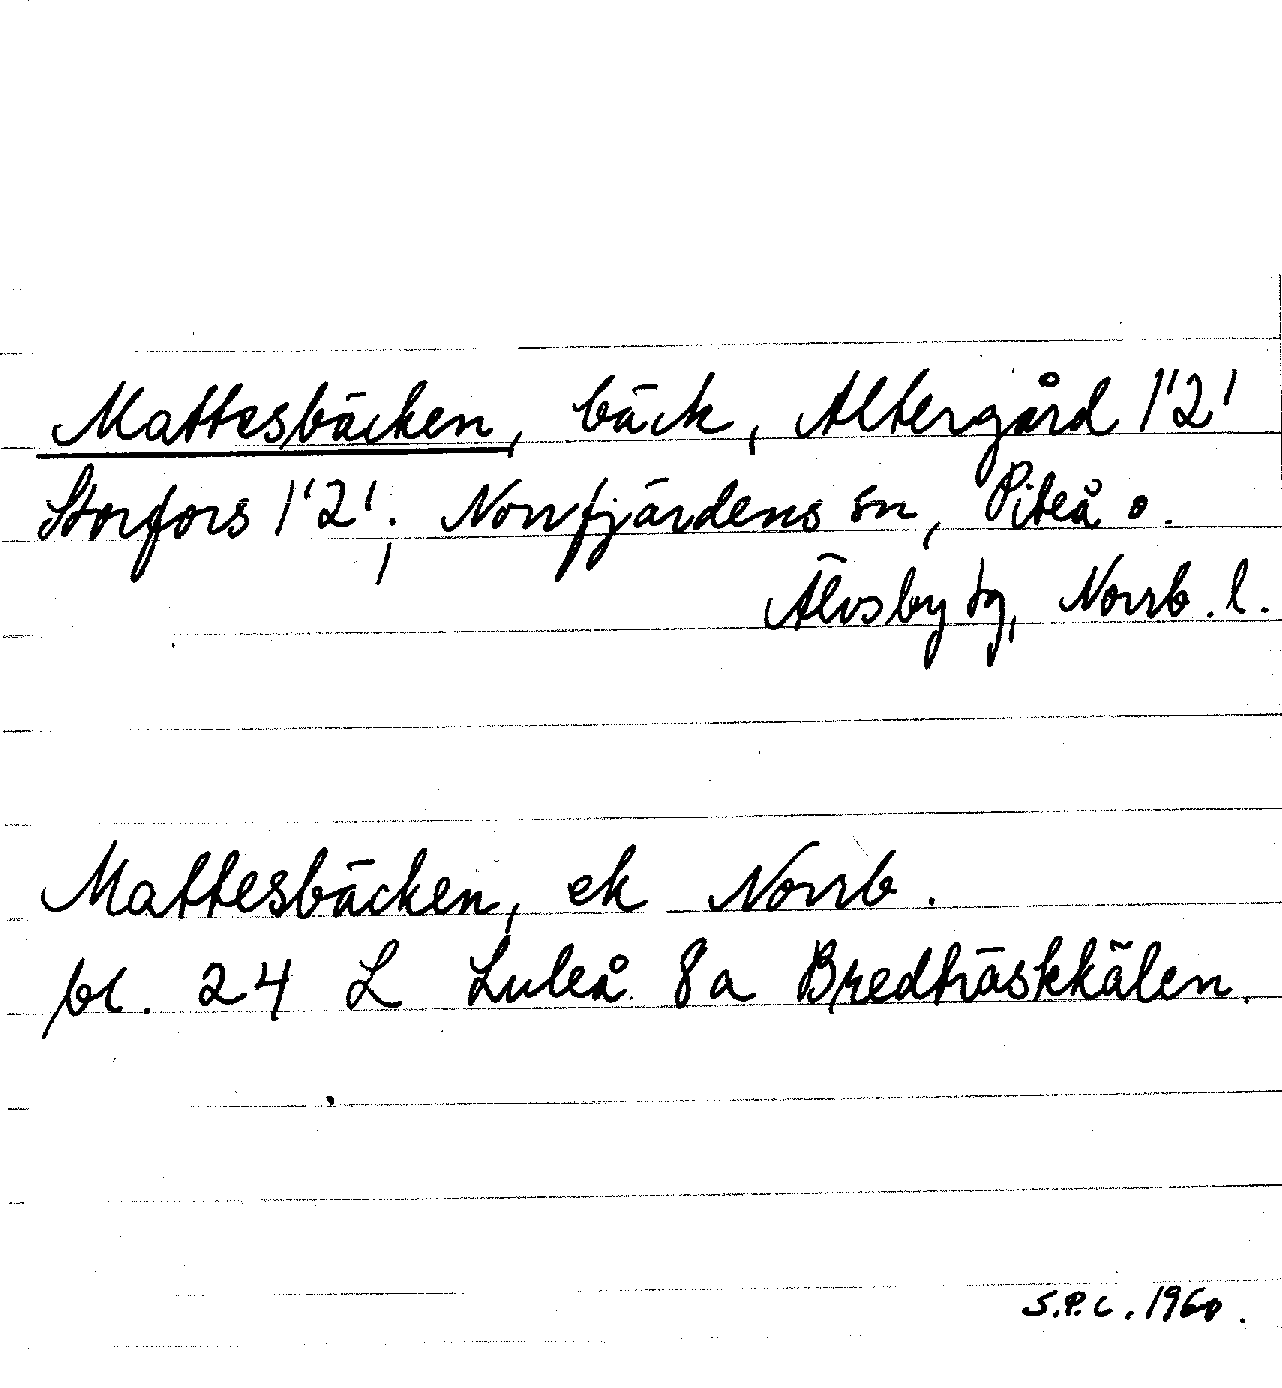 Mattesbäcken, bäck, Altergård 1'2'
Storfors 1'2'; Norrfjärdens sn, Piteå o.
Älvsby tg, Norrb. l.
Mattesbäcken, ek Norrb.
bl. 24 L Luleå 8a Bredträskkälen.
S.P.C. 1960.